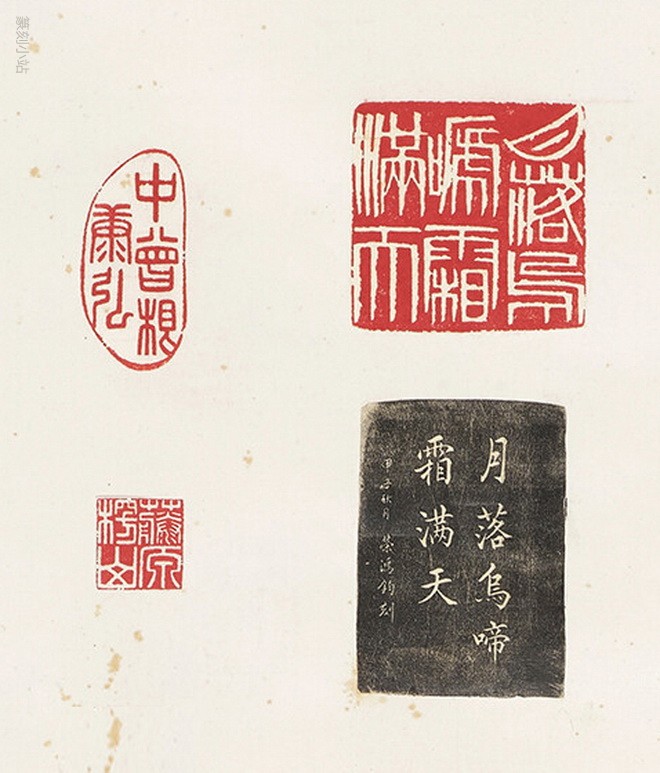 篆刻小站
月落烏
嗁霜
滿天
中曾根
康弘
藤原
楞山
月落烏啼
霜满天
甲子秋月 鴻鈞刻